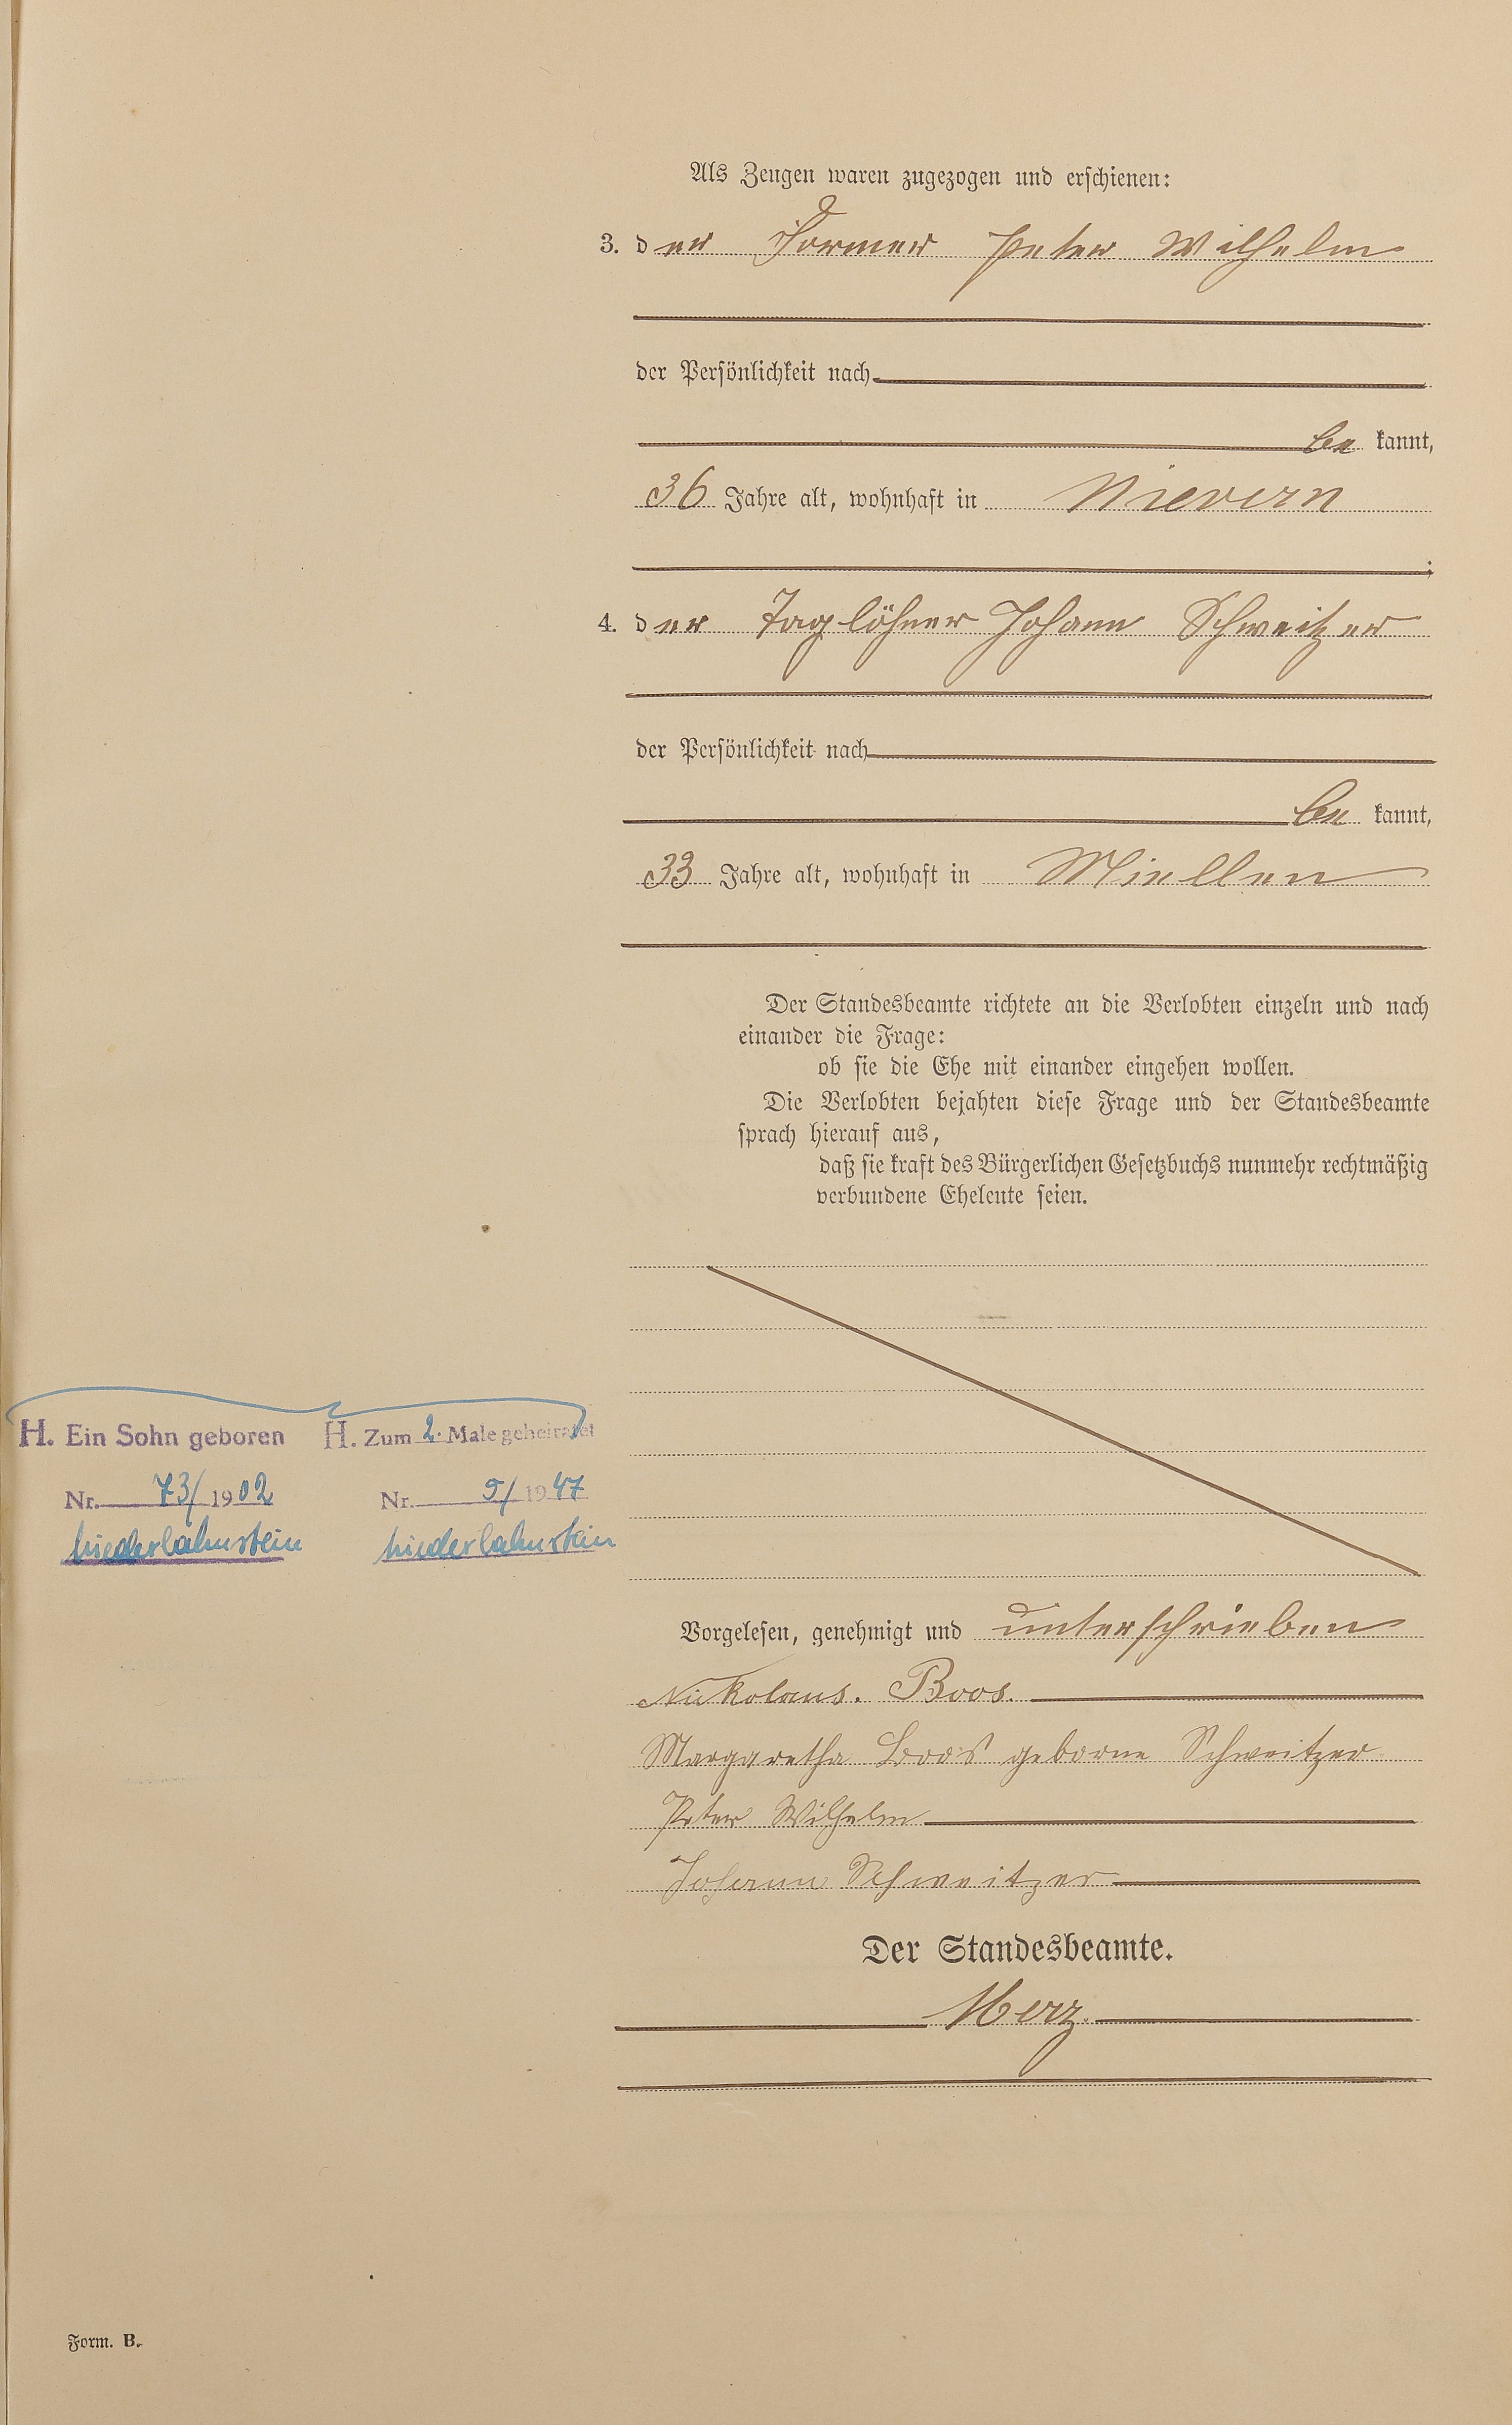 Als Zeugen waren zugezogen und erschienen:
3. der Former Peter Wilhelm
der Persönlichkeit nach
be kannt,
36 Jahre alt, wohnhaft in Nievern
;
4. der Taglöhner Johann Schweitzer
der Persönlichkeit nach
be kannt,
33 Jahre alt, wohnhaft in Miellen
Der Standesbeamte richtete an die Verlobten einzeln und nach
einander die Frage:
ob sie die Ehe mit einander eingehen wollen.
Die Verlobten bejahten diese Frage und der Standesbeamte
sprach hierauf aus,
daß sie kraft des Bürgerlichen Gesetzbuchs nunmehr rechtmäßig
verbundene Eheleute seien.
H. Ein Sohn geboren
Nr. 73/1902
Niederlahnstein
H. Zum 2. Male geheiratet
Nr. 9/1947
Niederlahnstein
Vorgelesen, genehmigt und unterschrieben
Nickolaus. Boos.
Margaretha Boos geborne Schweitzer
Peter Wilhelm
Johann Schweitzer
Der Standesbeamte.
Merz.
Form. B.